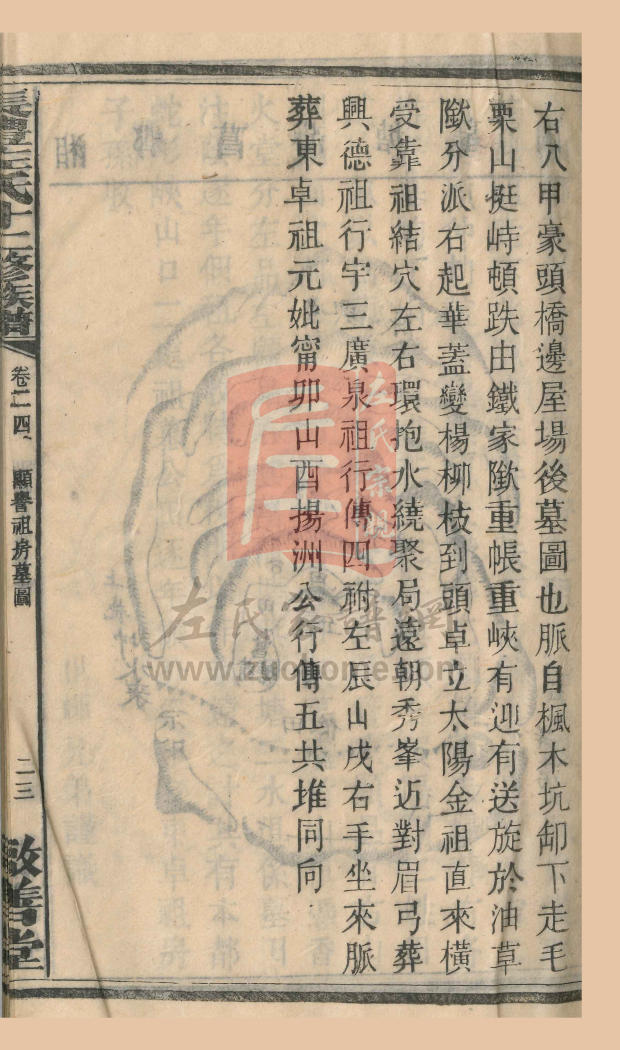 右八甲豪頭橋邊屋場後墓圖也脈自楓木坑卸下走毛
栗山挺峙頓跌由鐵家隞重帳重峽有迎有送旋於油草
隞分派右起華蓋變楊柳枝到頭卓立太陽金祖直來橫
受靠祖結穴左右環抱水繞聚局遠朝秀峯近對眉弓葬
興德祖行宇三廣泉祖行傳四祔左辰山戌右手坐來脈
葬東卓祖元妣甯卯山酉揚洲公行傳五共堆同向
左氏十二修族譜
卷二四
顯譽祖房墓圖
二三
敬善堂
左氏宗親
左氏家譜網
www.zuojiome.com